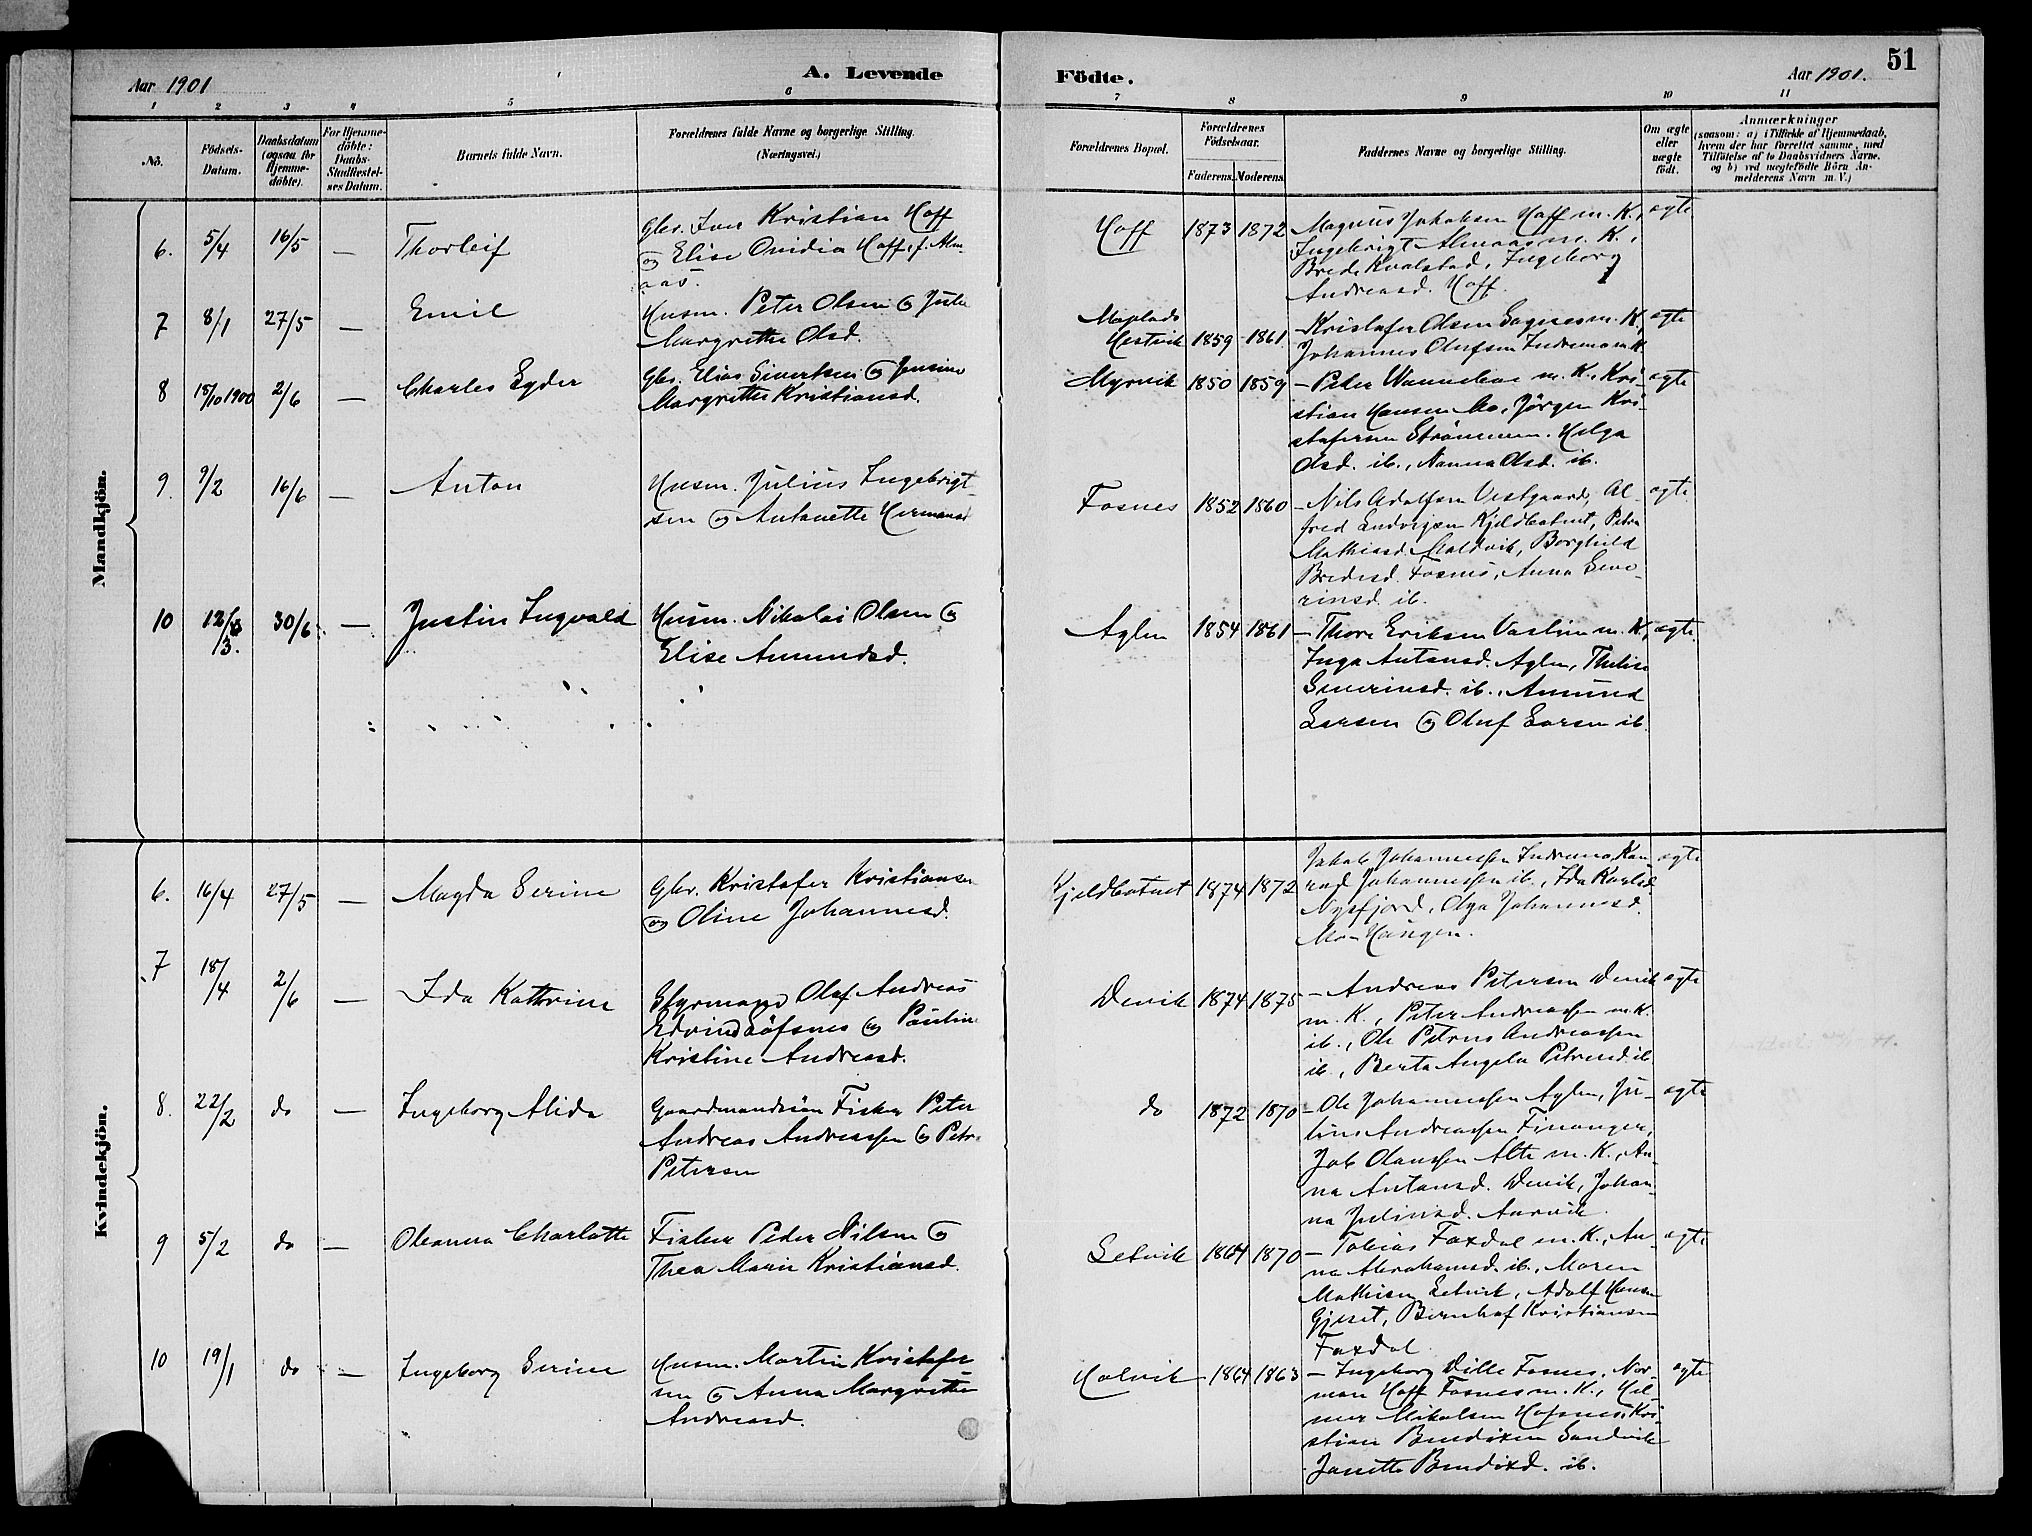 51
Aar 1901
A. Levende
Födte.
Aar 1901.
1 2 3 4 5 6 7 8 9 10 11
No.
Födsels-
Datum.
Daabsdatum
(ogsaa for
Hjemme-
döbte).
For Hjemme-
döbte:
Daabs-
Stadfæstel-
ses Datum.
Barnets fulde Navn.
Forældrenes fulde Navne og borgerlige Stilling.
(Næringsvei.)
Forældrenes Bopæl.
Forældrenes
Födselsaar.
Faderens. Moderens.
Faddernes Navne og borgerlige Stilling.
Om ægte
eller
uægte
födt.
Anmærkninger
(saasom: a) i Tilfælde af Hjemmedaab,
hvem der har forrettet samme, med
Tilföielse af to Daabsvidners Navne,
og b) ved uegtefödte Börn An-
melderens Navn m. V.)
Mandkjön.
6. 5/4 16/5 — Thorleif
Gbr. Iver Kristian Hoff
og Elise Ovidia Hoff f. Alm-
aas.
Hoff 1873 1872
Magnus Jakobsen Hoff m. K.,
Ingebrigt Almaas m. K.,
Brede Kvalstad, Ingeborg
Andreasd. Hoff.
ægte
7 8/1 27/5 — Emil
Husm. Peter Olsen og
Margrethe Olsd.
Hestvik 1859 1861
— Kristofer Olsen Sagnes m. K.,
Johannes Olufsen Indremo m. K.
ægte
8 15/10 1900 2/6 — Charles Egder
Gbr. Elias Sivertsen og Jensine
Margrethe Kristiansd.
Myrvik 1850 1859
— Peder Wannebo m. K., Kri-
stian Hansen Mo, Jörgen Kri-
stofersen Strömmen, Helga
Olsd. ib., Nanna Olsd. ib.
ægte
9. 9/2 16/6 — Anton
Husm. Julius Ingebrigt-
sen og Antonette Hermansd
Fosnes 1852 1860
— Nils Adolfsen Vestgaard, Al-
fred Ludvigsen Kjeldbotnet, Petra
Mathiasd. Maldvik, Borghild
Bredesd. Fosnes, Anna Seve-
rinsd. ib.
ægte
10 12/3. 30/6 — Justin Ingvald
Husm. Nikolai Olsen og
Elise Amundsd.
Aglen 1854 1861
— Thore Eriksen Vastin m. K.,
Inga Antonsd. Aglen,
Severinsd. ib., Amund
Larsen og Oluf Larsen ib.
ægte
Kvindekjön.
6. 16/4 27/5 — Magda Serine
Gbr. Kristofer Kristiansen
og Oline Johannesd.
Kjeldbotnet 1874 1872
Jakob Johannessen Indremo, Kon
rad Johannessen ib., Ida Karlsd
Nysfjord, Olga Johannesd.
Mo-Haugen.
ægte
7 18/4 2/6 — Ida Kathrine
Styrmand Olaf Andreas
Edvind Löfsnes og Pauline
Kristine Andreasd.
Devik 1874 1875
— Andreas Petersen Devik
m. K., Peter Andreassen m. K.
ib., Ole Petrus Andreassen
ib., Berta Angela Petersd. ib
ægte
8. 22/2 do — Ingeborg Alida
Gaardmandssön Fisker Peter
Andreas Andreassen og Petra
Petersen
do 1872 1870
— Ole Johannessen Aglen, Ju-
lius Andreassen Finanger,
Job Olaussen Alte m. K., An-
na Antonsd. Devik, Johan-
na Juliusd. Aarvik.
ægte
9 5/2 do — Oleanna Charlotte
Fisker Peder Nilsen og
Thea Marie Kristiansd.
Setvik 1864 1870
— Tobias Faxdal m. K., An-
na Abrahamsd. ib., Maren
Mathisen Setvik, Adolf Hansen
Gjeset, Bernhof Kristiansen
Faxdal.
ægte
10 19/1 do — Ingeborg Serine
Husm. Martin Kristofer-
sen og Anna Margrethe
Andreasd.
Halvik 1864 1863
— Ingeborg Dille Fosnes, Nor-
man Hoff Fosnes m. K., Hel-
mer Mikalsen Hofsnes, Kri-
stian Bendixen Sandvik
Janette Bendixd. ib.
ægte